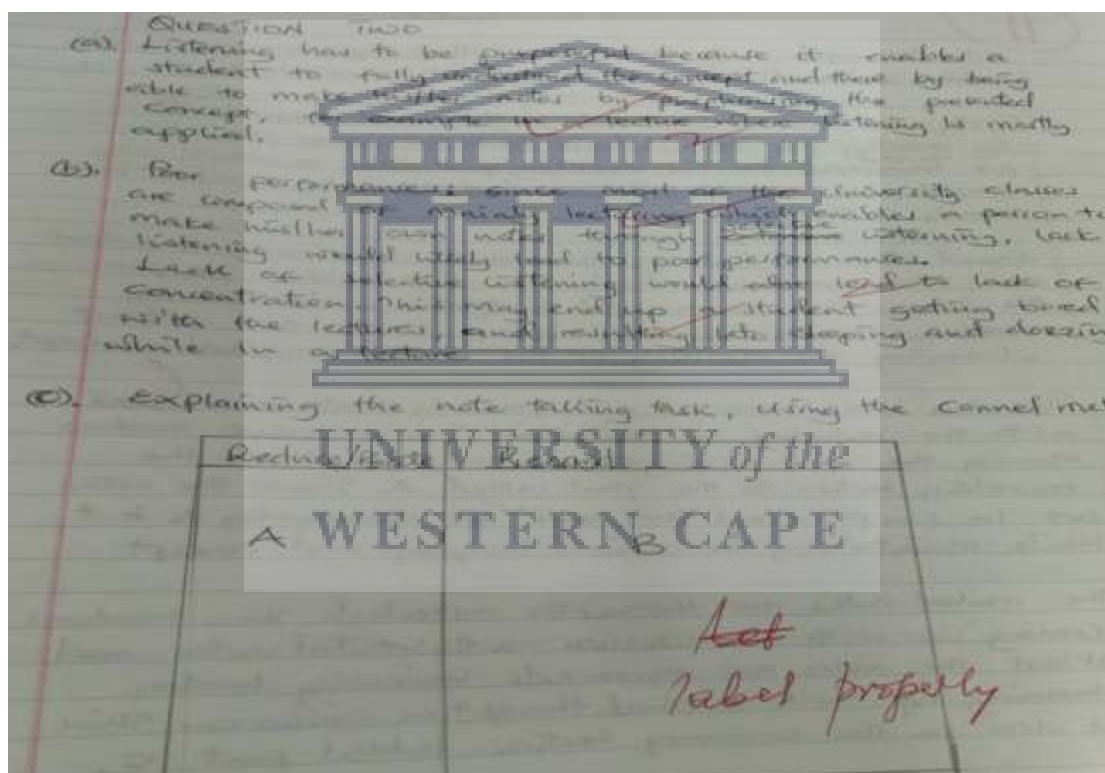 QUESTION TWO
(a). Listening has to be purposeful because it enables a
student to fully understand the concept and there by being
able to make his/her notes by paraphrasing the presented
concept, for example in a lecture where listening is mostly
applied.
(b). Poor performance: since most of the University classes
are composed of mainly lecturing which enables a person to
make his/her own notes through listening, lack
listening would likely lead to poor performances.
Lack of selective listening would also lead to lack of
concentration. This may end up a student getting bored
with the lectures, and resulting into sleeping and dozin
while in a lecture
(c). Explaining the note taking task, using the Connel met
Reduce/ Record
A B
UNIVERSITY of the
WESTERN CAPE
label properly